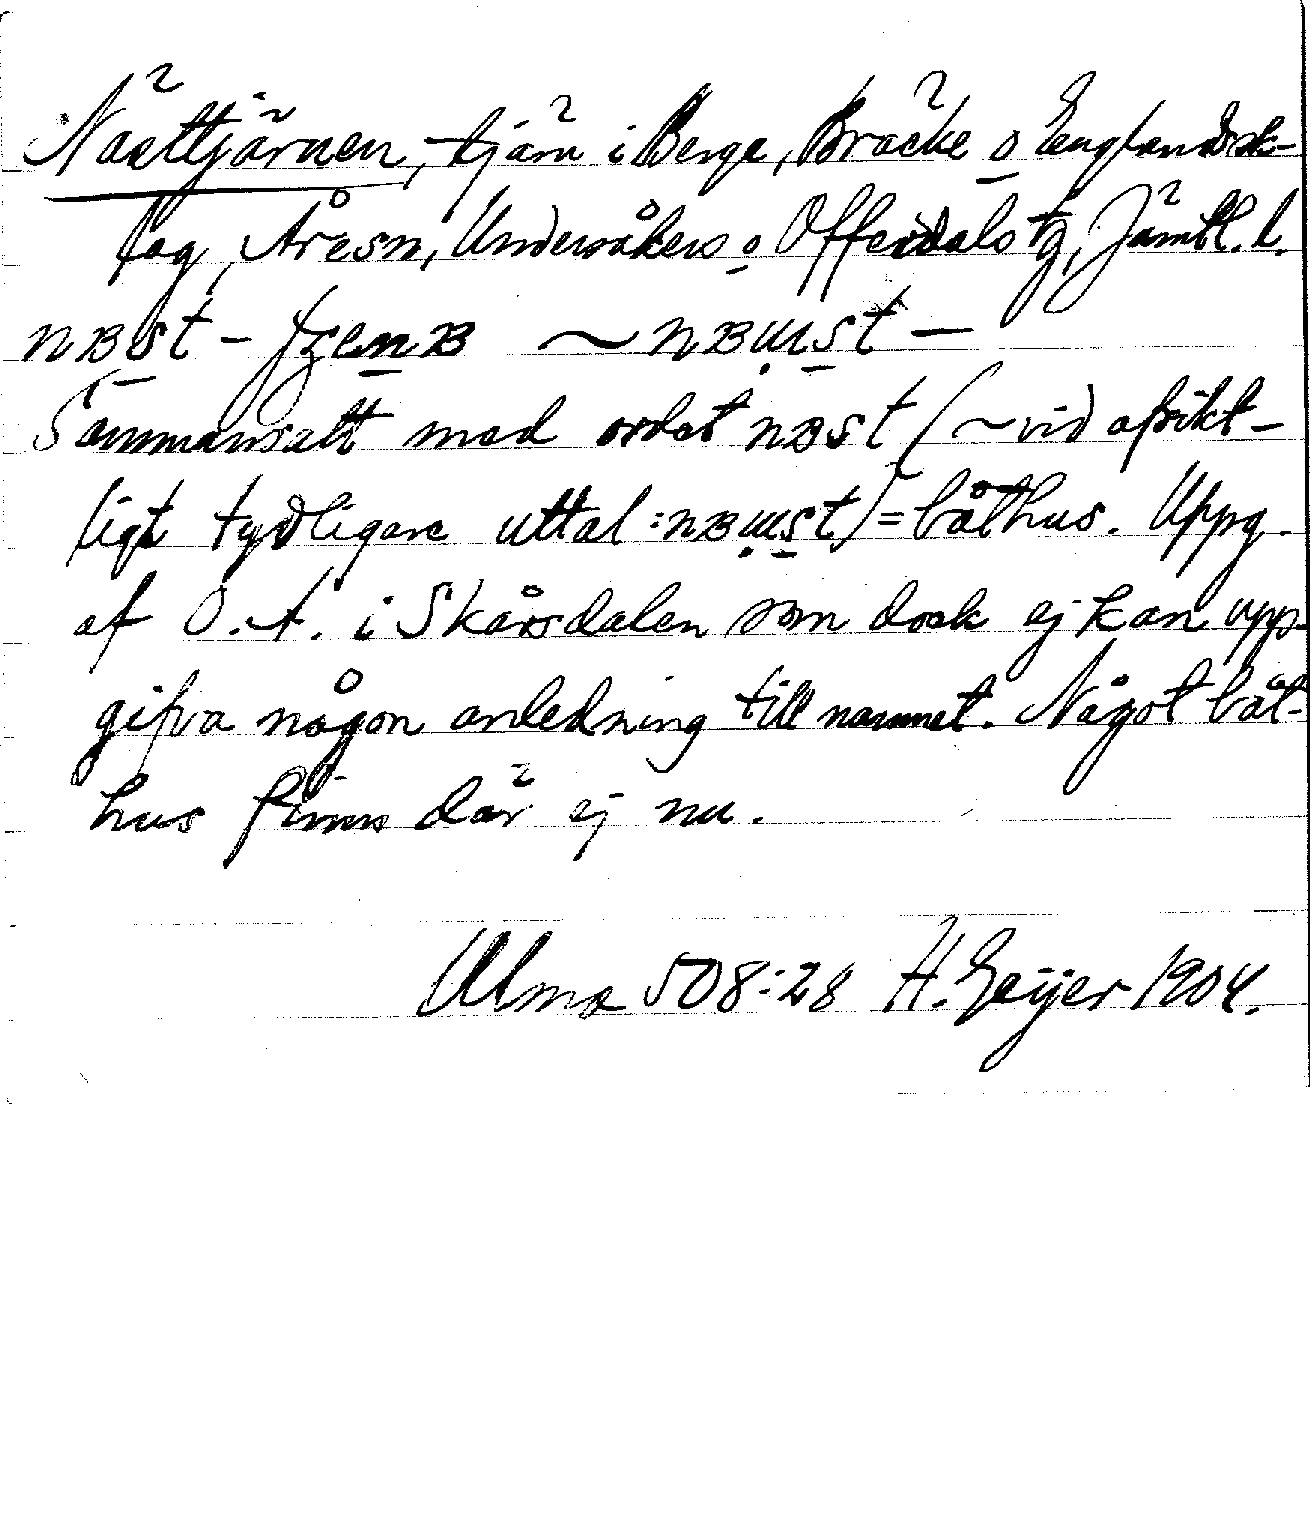 Nästtjärnen, tjärn i Berge, Bräcke o Englandsk-
lag, Åresn, Undersåkers o Offerdals tg, Jämtl. l.
nʙst - ~ nʙɯst —
Sammansatt med ordet nʙst (~ vid afsikt-
ligt tydligare uttal: nʙɯst) = båthus. Uppg.
af O. A. i Skårsdalen som dock ej kan upp-
gifva någon anledning till namnet. Något båt-
hus finns där ej nu.
Ulma 508:28 H. Geijer 1904.